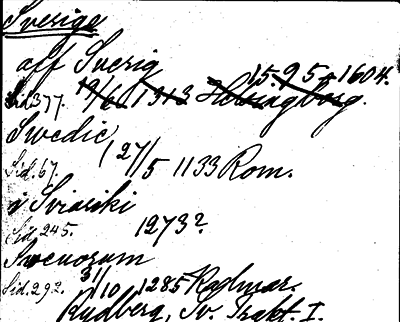 Sverige
aff Sverig
15.95+1604.
Sid 377. 19/6 1313 Helsingborg.
Swedie
Sid. 67. (27/5 1133 Rom.
i Sviariki
Sid. 245. 1273?
Swenorum
Sid. 292. 31/10 1285 Kalmar.
Rydberg, Sv. Trakt. I.